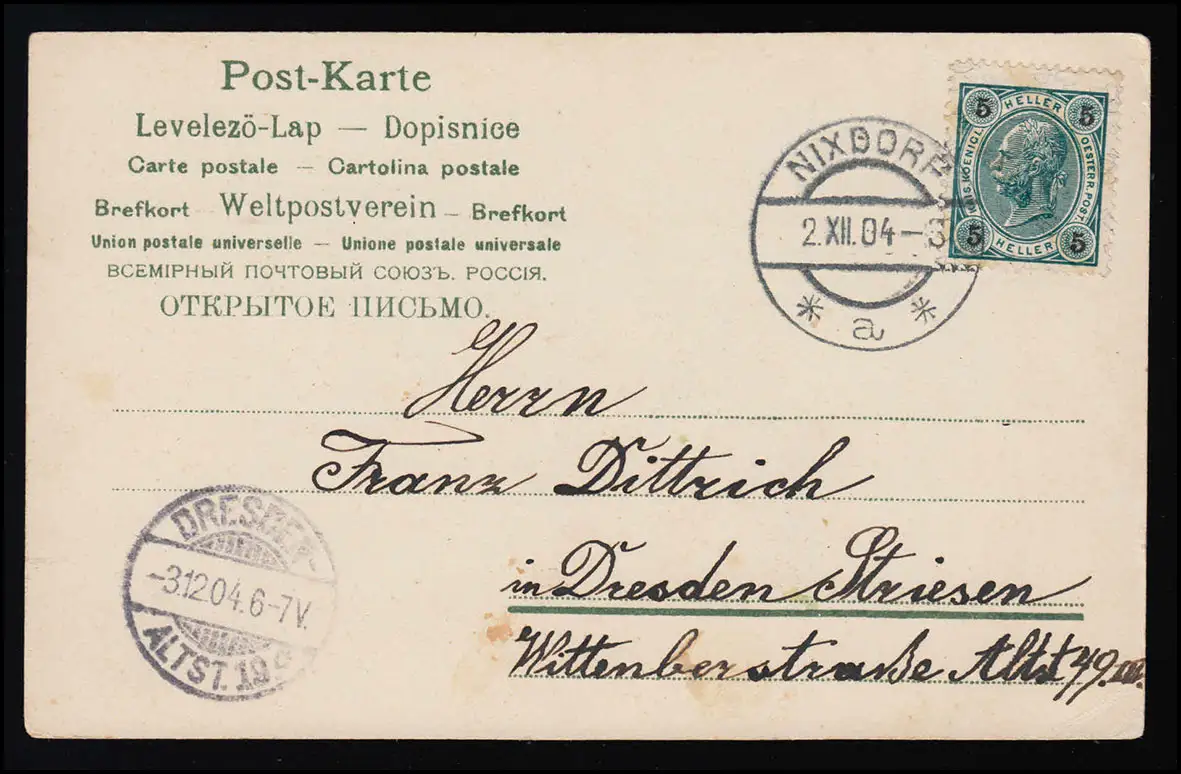 Post-Karte
Levelezö-Lap — Dopisnice
Carte postale — Cartolina postale
Brefkort — Weltpostverein — Brefkort
Union postale universelle — Unione postale universale
ВСЕМІРНЫЙ ПОЧТОВЫЙ СОЮЗЪ. РОССІЯ.
ОТКРЫТОЕ ПИСЬМО.
NIXDORF
2.XII.04-3
* a *
5 HELLER 5
KAIS. KOENIGL. OESTERR. POST.
5 HELLER 5
Herrn
Franz Dittrich
in Dresden Striesen
Wittenberstraße Altst 49. III.
DRESDEN-
-3.12.04. 6-7V.
ALTST. 19